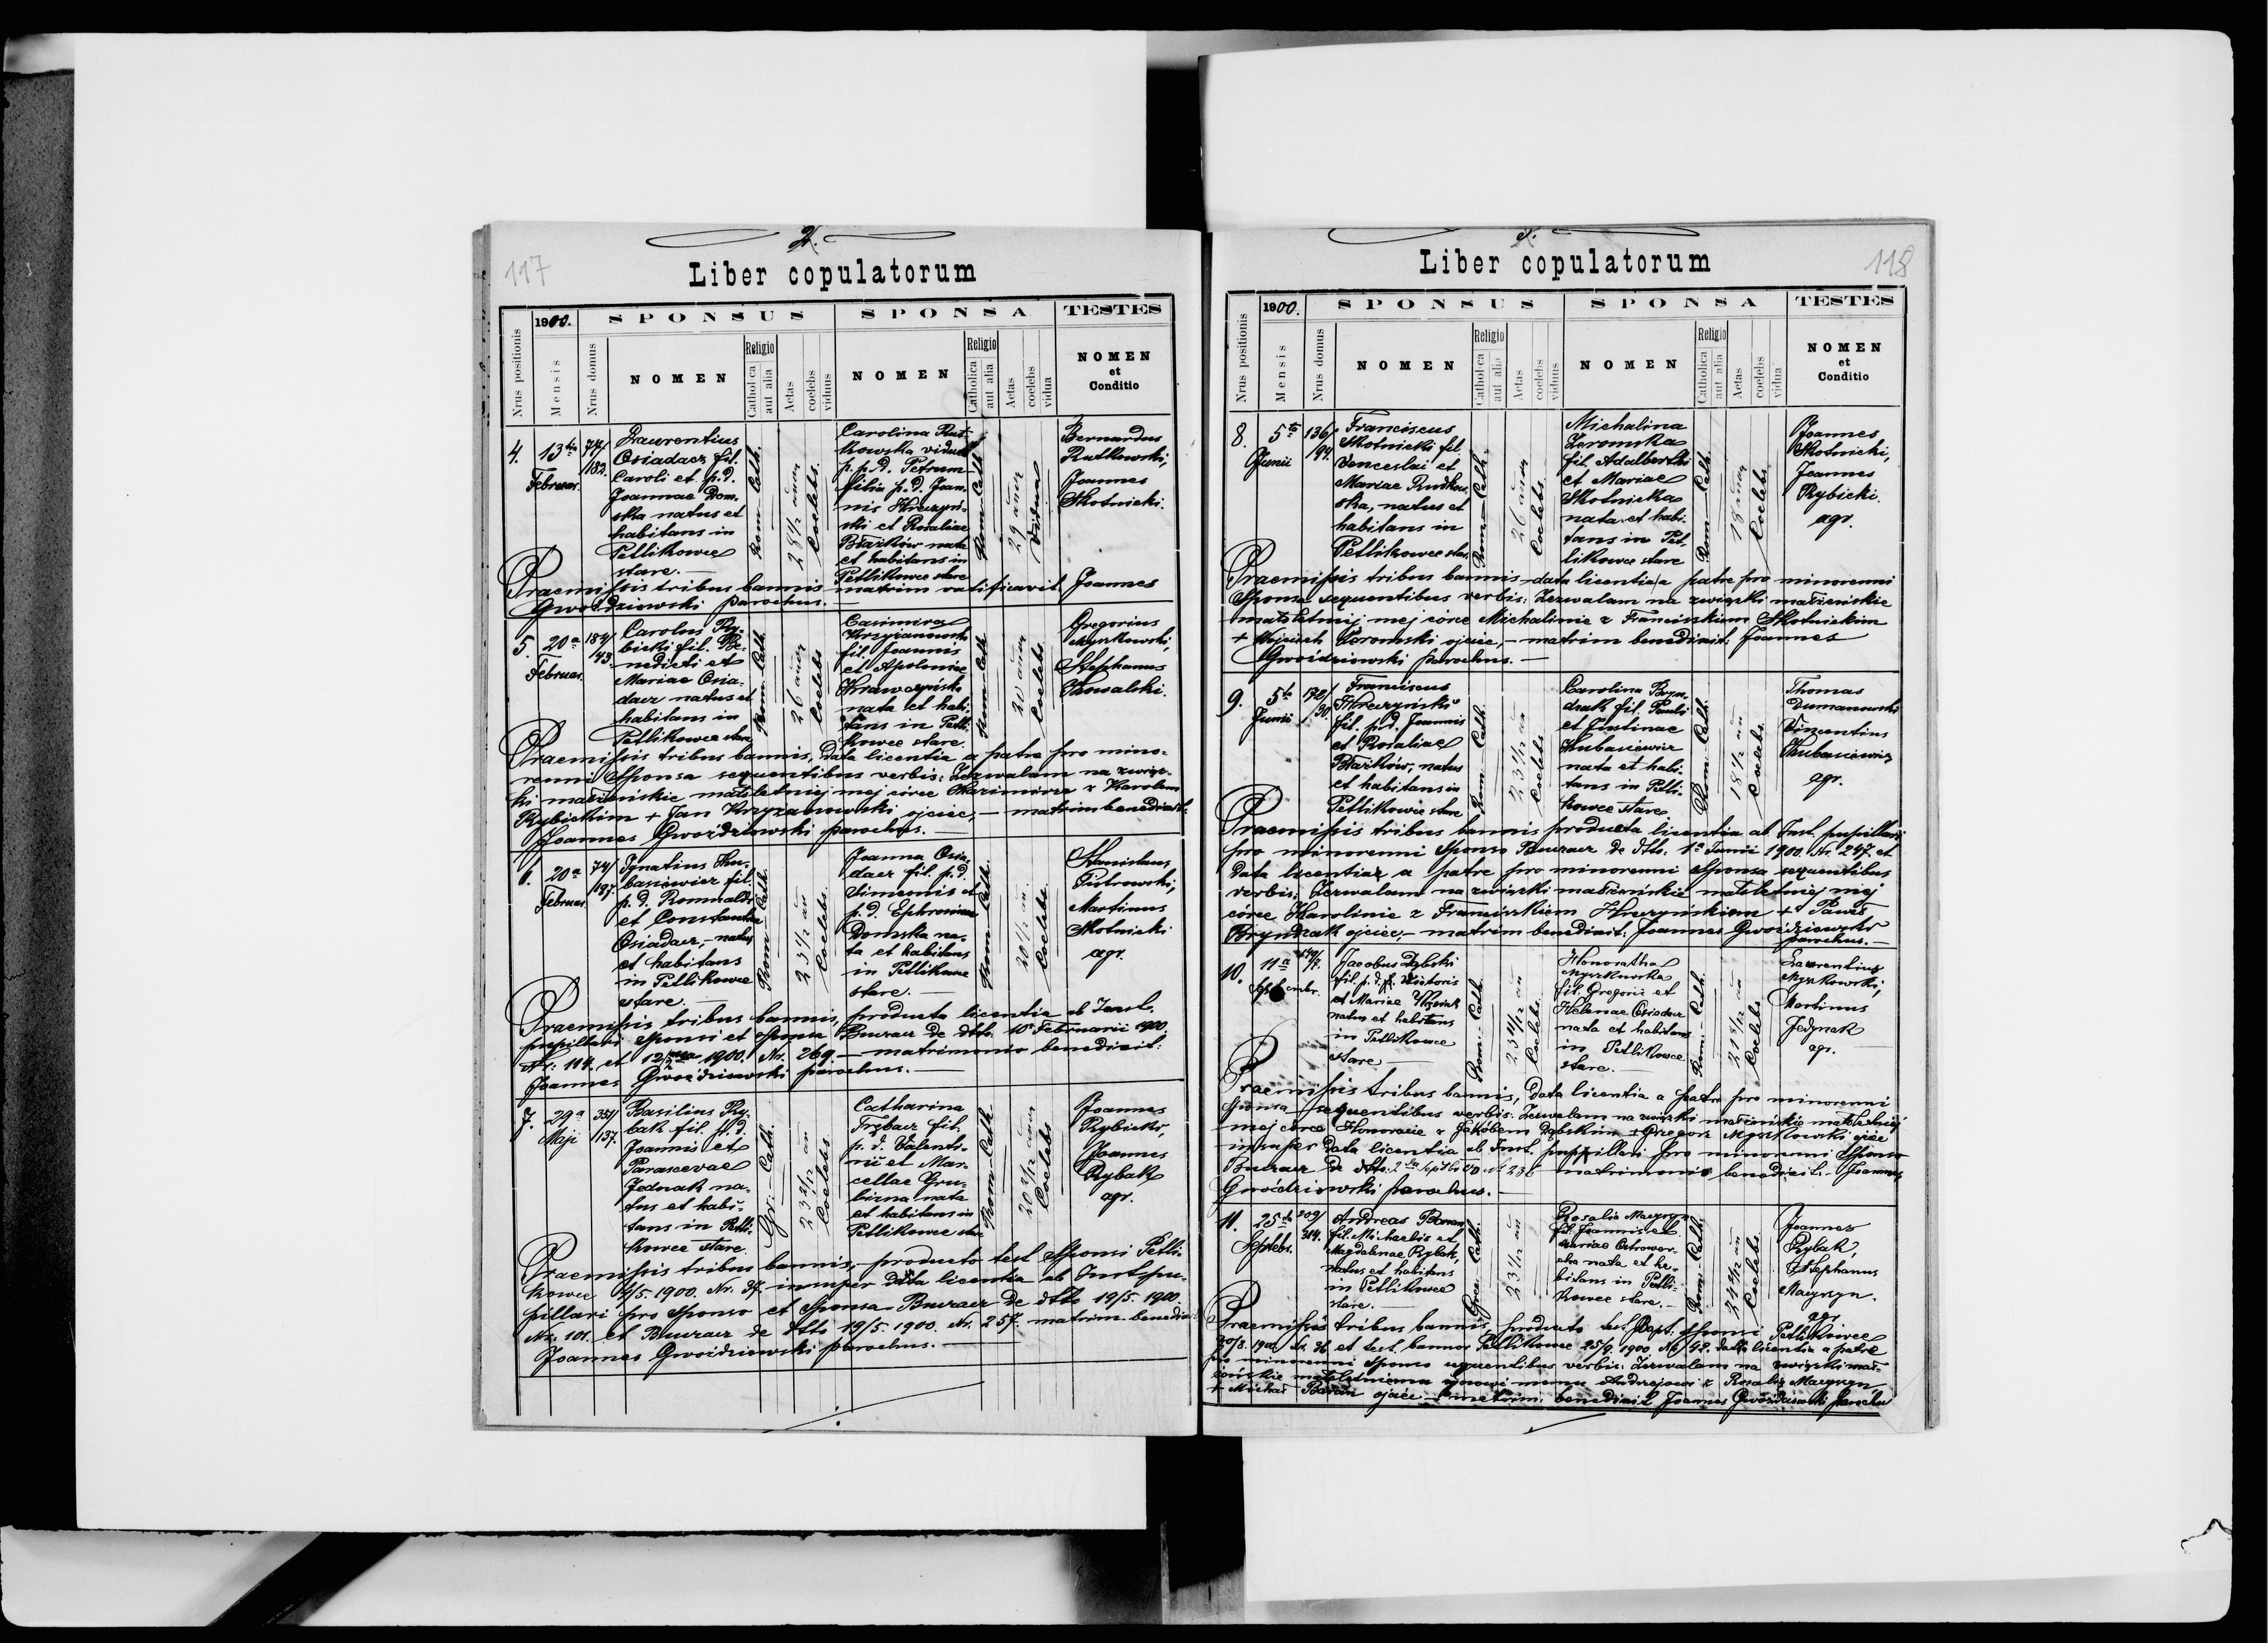 2.
117
Liber copulatorum
1900.
SPONSUS
SPONSA
TESTES
Nrus positionis
Mensis
Nrus domus
NOMEN
Religio
Catholica
aut alia
Aetas
coelebs
viduus
NOMEN
Religio
Catholica
aut alia
Aetas
coelebs
vidua
NOMEN
et
Conditio
4.
13ta
Februar.
77/
182.
Laurentius
Osiadacz fil.
Caroli et p.d.
Joannae Dom-
ska natus et
habitans in
Petlikowce
stare.
Rom. Cath.
28 1/2 anor
Coelebs.
Carolina Rut-
kowska vidua
p. p.d. Petrum
filia p.d. Joan-
nis Hreczyń-
ski et Rosaliae
Błażków nata
et habitans in
Petlikowce stare
Rom. Cath.
29 anor
Vidua
Bernardus
Rutkowski,
Joannes
Skotnicki.
Praemissis tribus bannis matrim ratificavit Joannes
Gwoździowski parochus.
5.
20a
Februar.
184/
43.
Carolus Ry-
bicki fil. Be-
nedicti et
Mariae Osia-
dacz natus et
habitans in
Petlikowce stare
Rom. Cath.
26 anor
Coelebs
Casimira
Krzyżanowska
fil. Joannis
et Apoloniae
Krawczyńska
nata et habi-
tans in Petli-
kowce stare.
Rom. Cath.
20 anor
Coelebs
Gregorius
Myszkowski,
Stephanus
Kowalski.
Praemissis tribus bannis, data licentia a patre pro mino-
renni Sponsa sequentibus verbis: Zezwalam na związ-
ki małżeńskie małoletniej mej córce Kazimirze z Karolem
Rybickim + Jan Krzyżanowski ojciec, — matrim benedixit
Joannes Gwoździowski parochus. —
6.
20a
Februar.
74/
187.
Ignatius Ku-
basiewicz fil.
p.d. Romualdi
et Constantiae
Osiadacz, natus
et habitans
in Petlikowce
stare.
Rom. Cath.
Coelebs.
Joanna Osia-
dacz fil. p.d.
Simeonis et
p.d. Ephrosinae
Domska na-
ta et habitans
in Petlikowce
stare.
Rom. Cath.
Coelebs
Stanislaus
Piotrowski,
Martinus
Skotnicki
agr.
Praemissis tribus bannis, producta licentia ab Inst.
pupillari Sponsi et Sponsa Buczacz de dtto 10 Februarii 1900.
Nr. 114. et 1900. Nr. 269. — matrimonio benedixit:
Joannes Gwoździowski parochus. —
7.
29a
Maji
351/
137.
Basilius Ry-
bak fil. p.d.
Joannis et
Parascevae
Jednak na-
tus et habi-
tans in Petli-
kowce stare.
Gr. Cath.
23 2/12 an
Coelebs.
Catharina
Trębacz fil.
p.d. Valenti-
nii et Mar-
cellae Gru-
bizna nata
et habitans in
Petlikowce stare
Rom. Cath.
20 2/12 anor
Coelebs
Joannes
Rybicki,
Joannes
Rybak
agr.
Praemissis tribus bannis, — producto test Sponsi Petli-
kowce 4/5. 1900. Nr. 37. insuper data licentia ab Inst pu-
pillari pro Sponso et Sponsa Buczacz de dtto 19/5. 1900.
Nr. 101. et Buczacz de dtto 19/5. 1900. Nr. 257. matrim. benedixit
Joannes Gwoździowski parochus. —
3.
118
Liber copulatorum
1900.
SPONSUS
SPONSA
TESTES
Nrus positionis
Mensis
Nrus domus
NOMEN
Religio
Catholica
aut alia
Aetas
coelebs
viduus
NOMEN
Religio
Catholica
aut alia
Aetas
coelebs
vidua
NOMEN
et
Conditio
8.
5ta
Junii
136/
199.
Franciscus
Skotnicki fil.
Venceslai et
Mariae Rudkow-
ska, natus et
habitans in
Petlikowce stare
Rom. Cath.
26 anor
Coelebs.
Michalina
Zeromska
fil. Adalberthi
et Mariae
Skotnicka
nata et habi-
tans in Pet-
likowce stare
Rom. Cath.
18 anor
Coelebs.
Joannes
Skotnicki,
Joannes
Rybicki.
agr.
Praemissis tribus bannis — data licentia a patre pro minorenni
Sponsa sequentibus verbis: Zezwalam na związki małżeńskie
małoletniej mej córce Michalinie z Franciszkiem Skotnickim
+ Wojciech Żeromski ojciec, — matrim benedixit: Joannes
Gwoździowski parochus. —
9.
5ta
Junii
172/
30.
Franciscus
Hreczyński
fil. p.d. Joannis
et Rosaliae
Błażków, natus
et habitans in
Petlikowce stare
Rom. Cath.
Coelebs
Carolina Bryn-
dzak fil. Pauli
et Justinae
Kubasiewicz
nata et habi-
tans in Petli-
kowce stare
Rom. Cath.
Coelebs.
Thomas
Dumanowski
Vincentius
Kubasiewicz
agr.
Praemissis tribus bannis producta licentia ab Inst. pupillari
pro minorenni Sponso Buczacz de dtto. 1a Junii 1900. Nr. 247. et
data licentia a patre pro minorenni Sponsa sequentibus
verbis: Zezwalam na związki małżeńskie małoletniej mej
córce Karolinie z Franciszkiem Hreczyńskiem + Paweł
Bryndzak ojciec, — matrim benedixit: Joannes Gwoździowski
parochus. —
10.
11a
Septembr.
Jacobus Dębski
fil. p.d. Victoris
et Mariae
natus et habitans
in Petlikowce
stare
Rom. Cath.
Coelebs.
Honoratha
Myszkowska
fil. Gregorii et
Helenae Osiadacz
nata et habitans
in Petlikowce
stare.
Rom. Cath.
Coelebs
Laurentius
Myszkowski,
Martinus
Jedynak
agr.
Praemissis tribus bannis, data licentia a patre pro minorenni
Sponsa sequentibus verbis: Zezwalam na związki małżeńskie małoletniej
mej córce Honoracie z Jakóbem Dębskim + Grzegorz Myszkowski ojciec
insuper data licentia ab Inst. pupillari pro minorenni Sponso
Buczacz de dtto. 1900 matrimonio benedixit: Joannes
Gwoździowski parochus. —
11.
25ta
Septebr.
209/
314.
Andreas Baran
fil. Michaelis et
Magdalenae Rybak,
natus et habitans
in Petlikowce
stare.
Grec. Cath.
Coelebs
Rosalia Maczyszyn
fil. Joannis et
Mariae
nata et ha-
bitans in Petli-
kowce stare.
Rom. Cath.
Coelebs.
Joannes
Rybak,
Stephanus
Maczyszyn.
agr.
Praemissis tribus bannis, producto test Bapt: Sponsi Petlikowce
1900 Nr. 36 et test. bannor Petlikowce 25/9. 1900. Nr. 42. data licentia a patre
pro minorenni Sponso sequentibus verbis: Zezwalam na związki mał-
żeńskie małoletniemu synowi memu Andrzejowi z Rosalią Maczyszyn
+ Michał Baran ojciec — matrim. benedixit Joannes Gwoździowski parochus